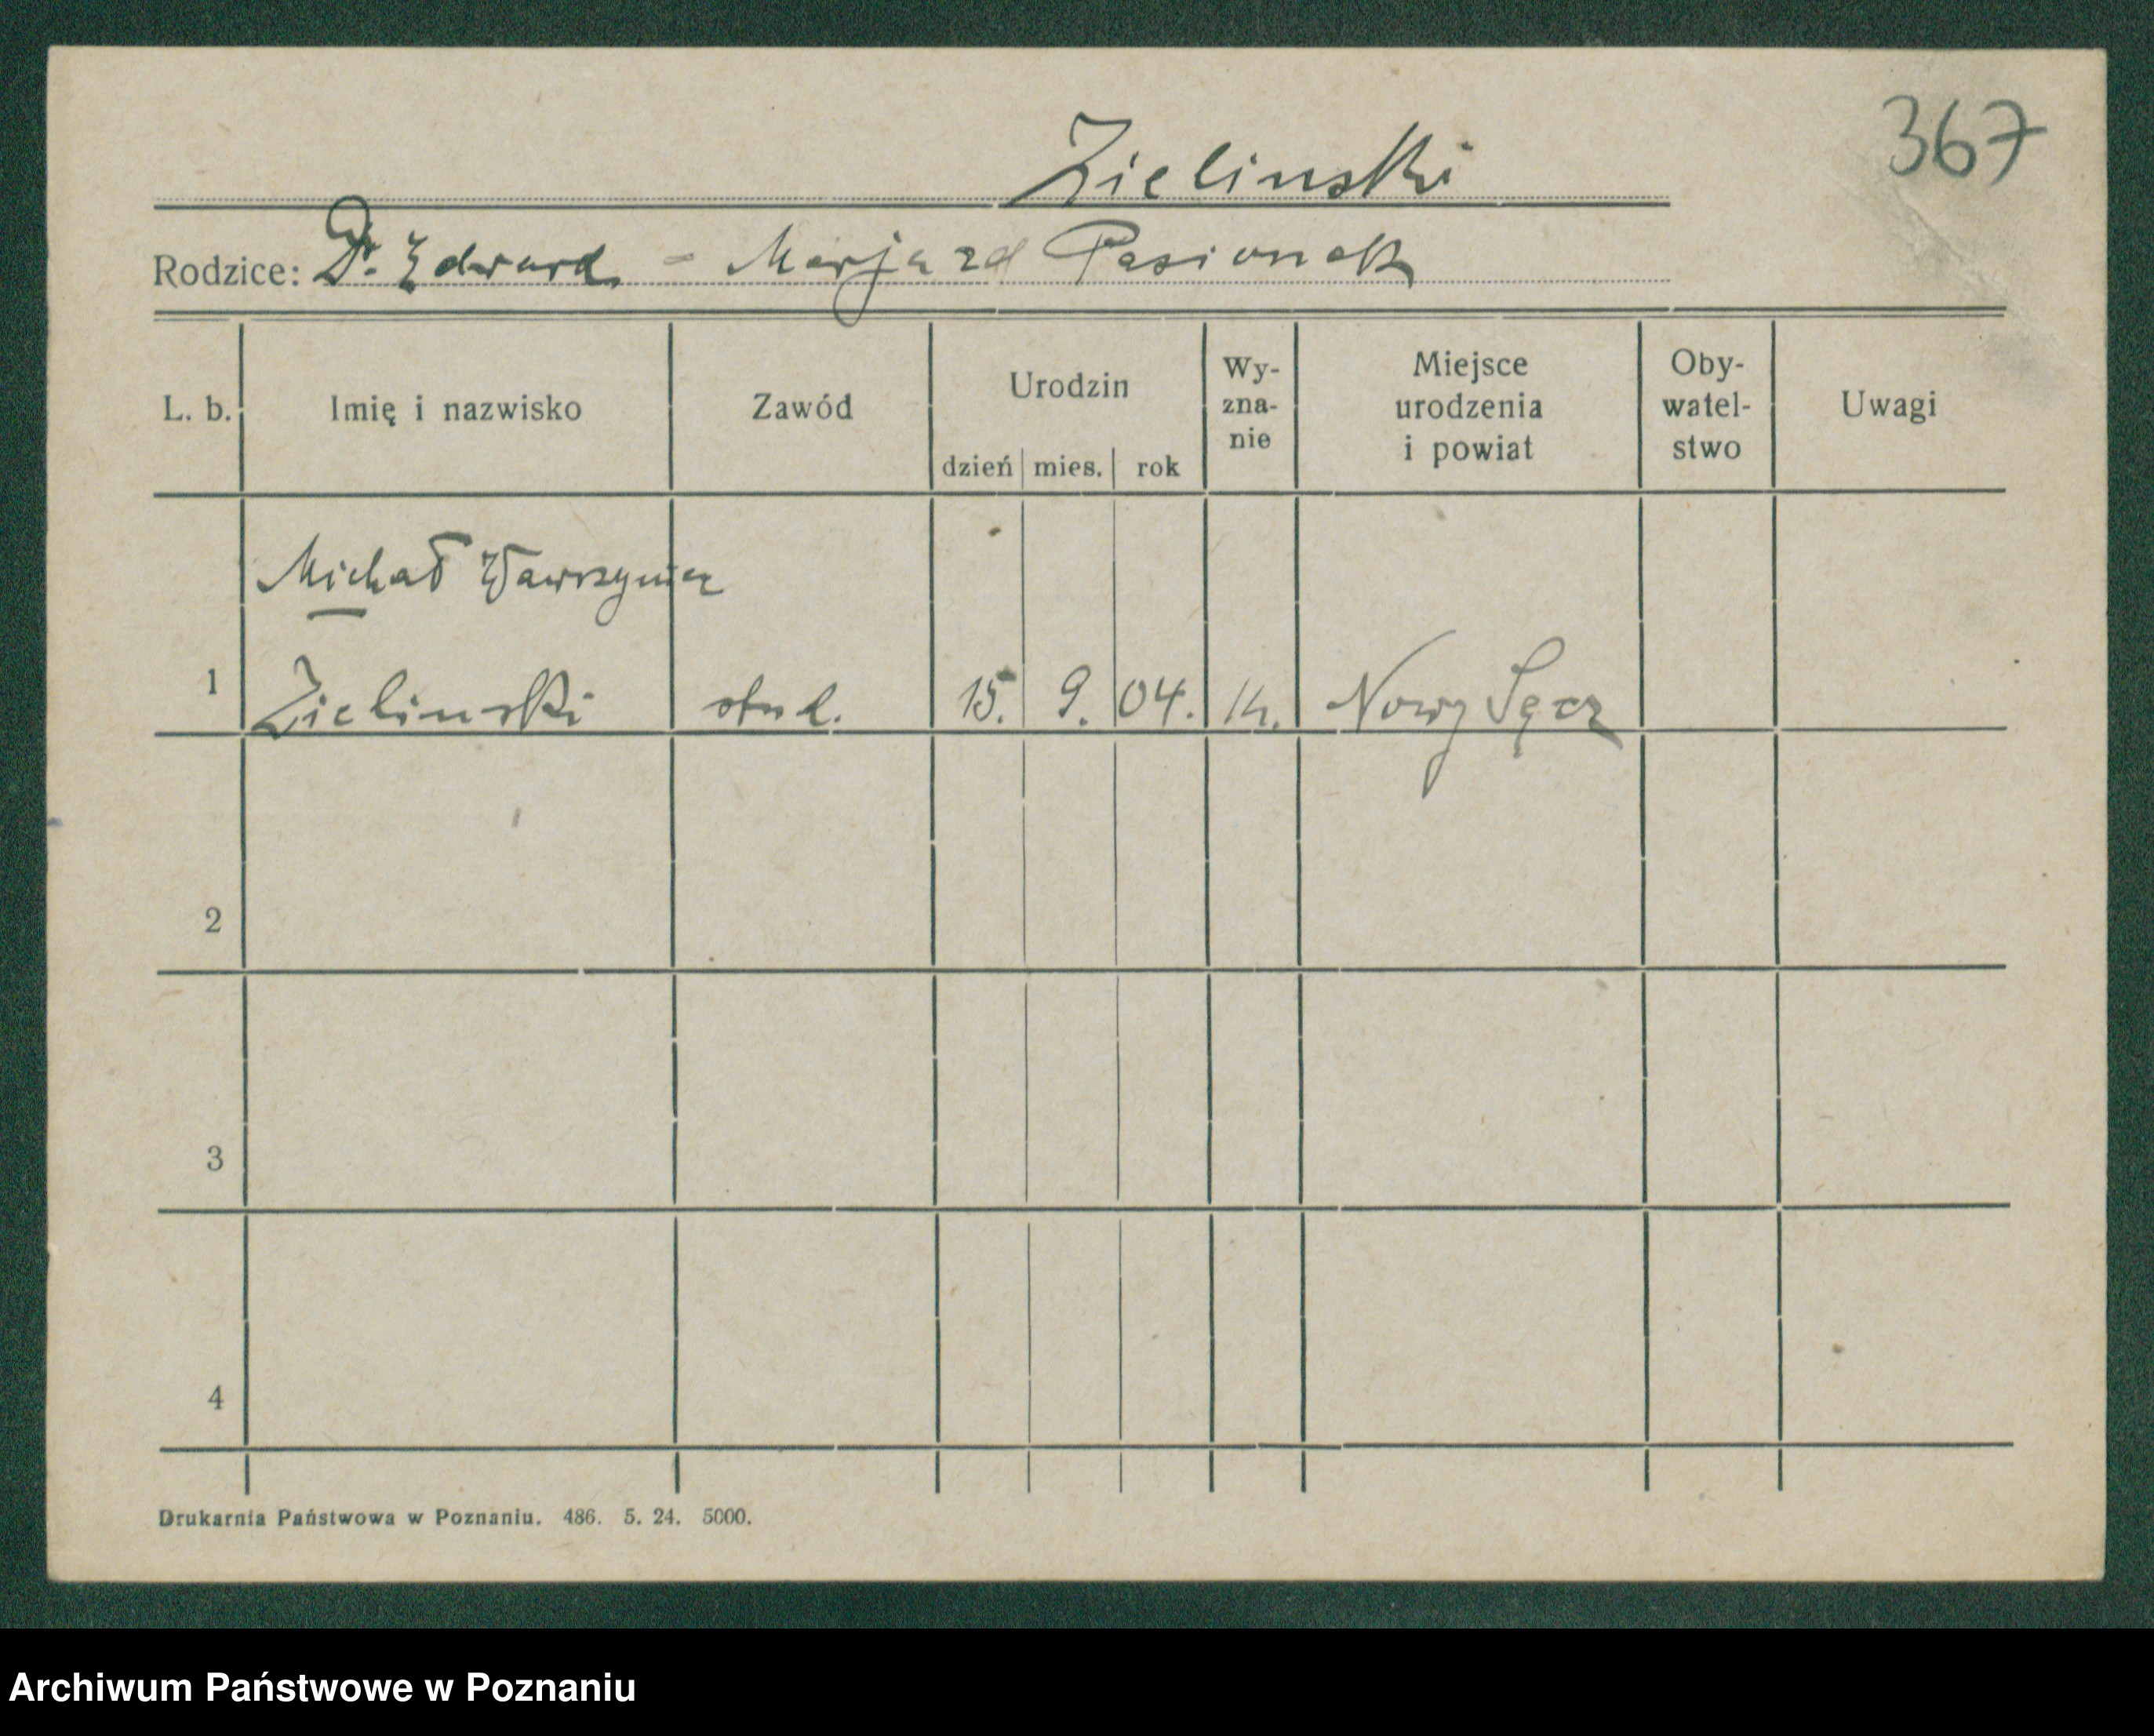 367
Zielinski
Rodzice: Dr. Edward - Marja zd Pasionek
L. b. Imię i nazwisko Zawód Urodzin dzień mies. rok Wy-zna-nie Miejsce urodzenia i powiat Oby-watel-stwo Uwagi
Michał Wawrzyniec
1 Zielinski stud. 15. 9. 04. k. Nowy Sącz
2
3
4
Drukarnia Państwowa w Poznaniu. 486. 5. 24. 5000.
Archiwum Państwowe w Poznaniu